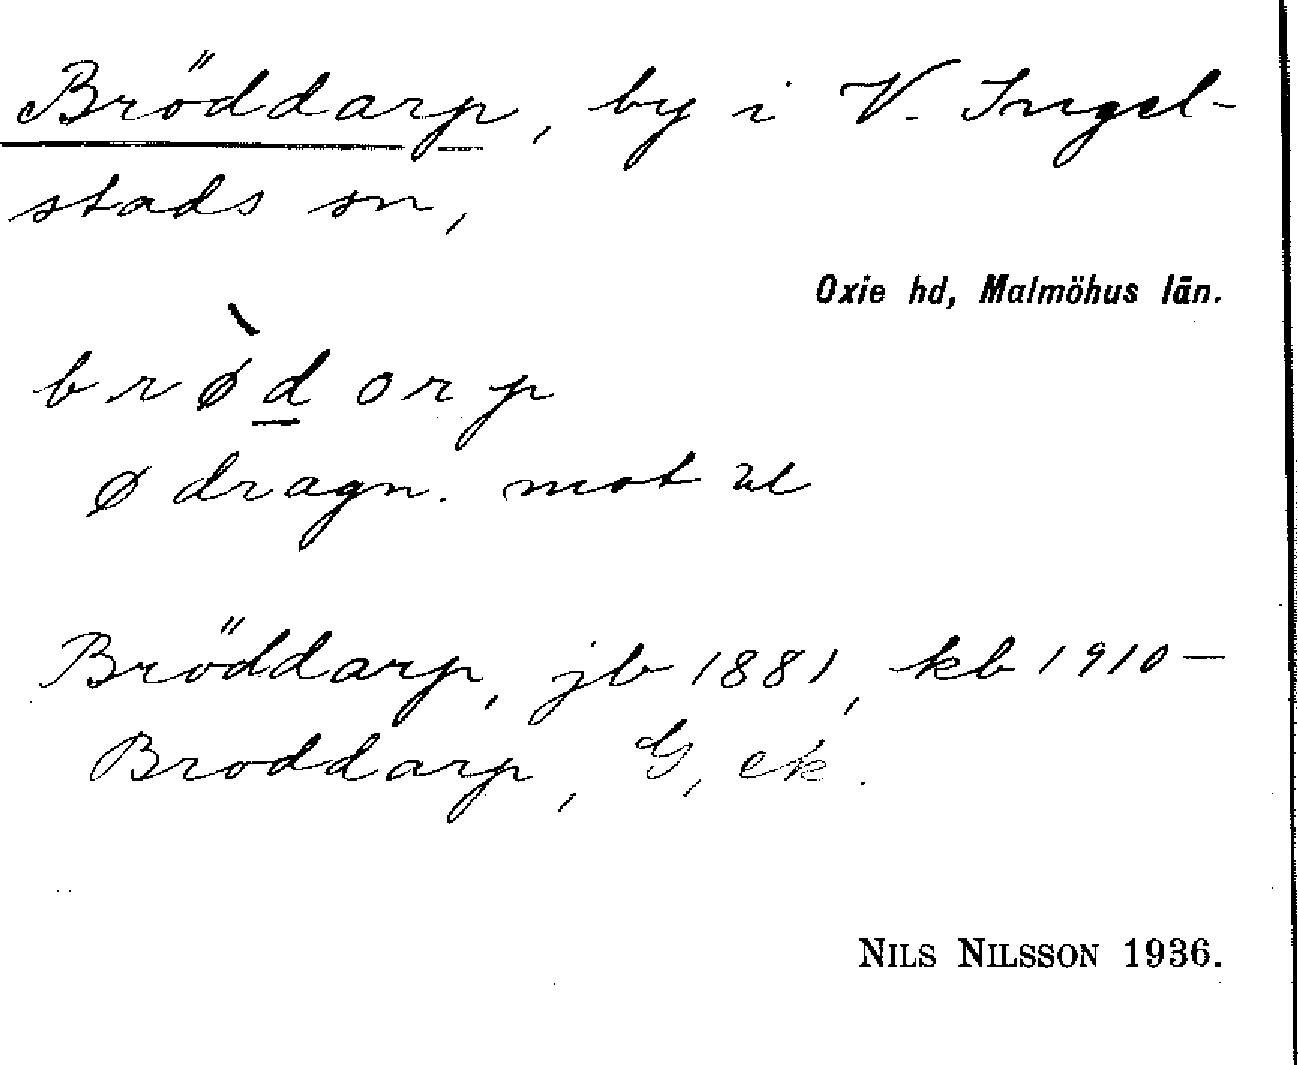 Bröddarp, by i V. Ingel-
stads sn,
Oxie hd, Malmöhus län.
brø̀d̲arp
ø dragn. mot œ
Bröddarp, jb 1881, kb 1910–
Broddarp, G, ek.
NILS NILSSON 1936.